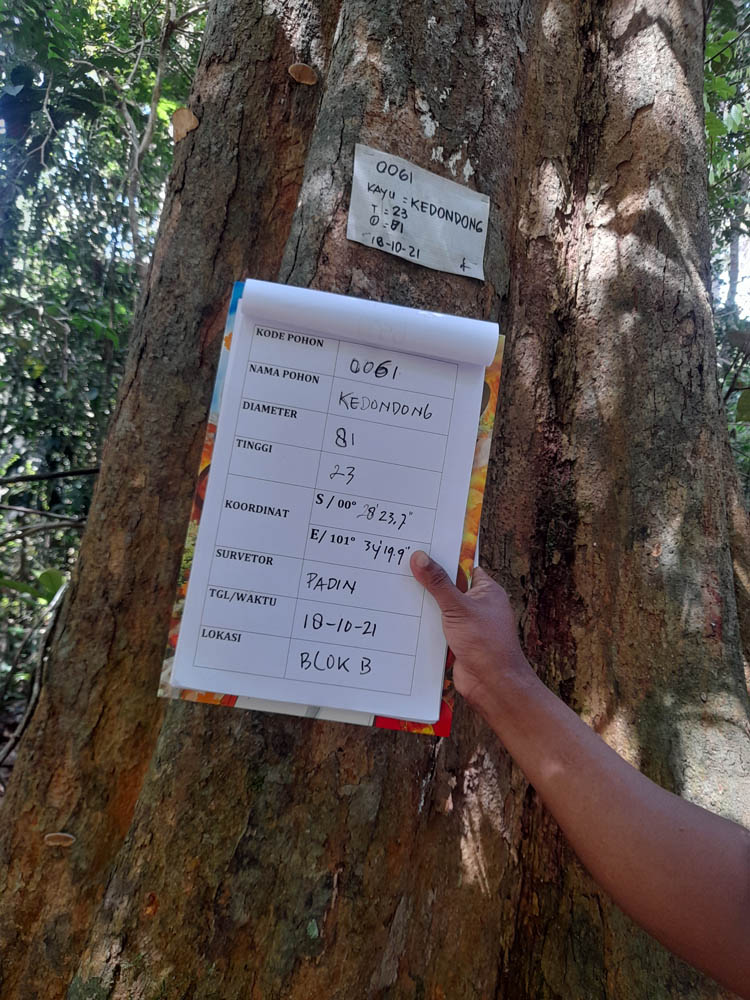 0061
KAYU = KEDONDONG
T = 23
Ø = 81
18-10-21
KODE POHON 0061
NAMA POHON KEDONDONG
DIAMETER 81
TINGGI 23
KOORDINAT S / 00° 28'23,7"
E/ 101° 34'19.9"
SURVETOR PADIN
TGL/WAKTU 18-10-21
LOKASI BLOK B